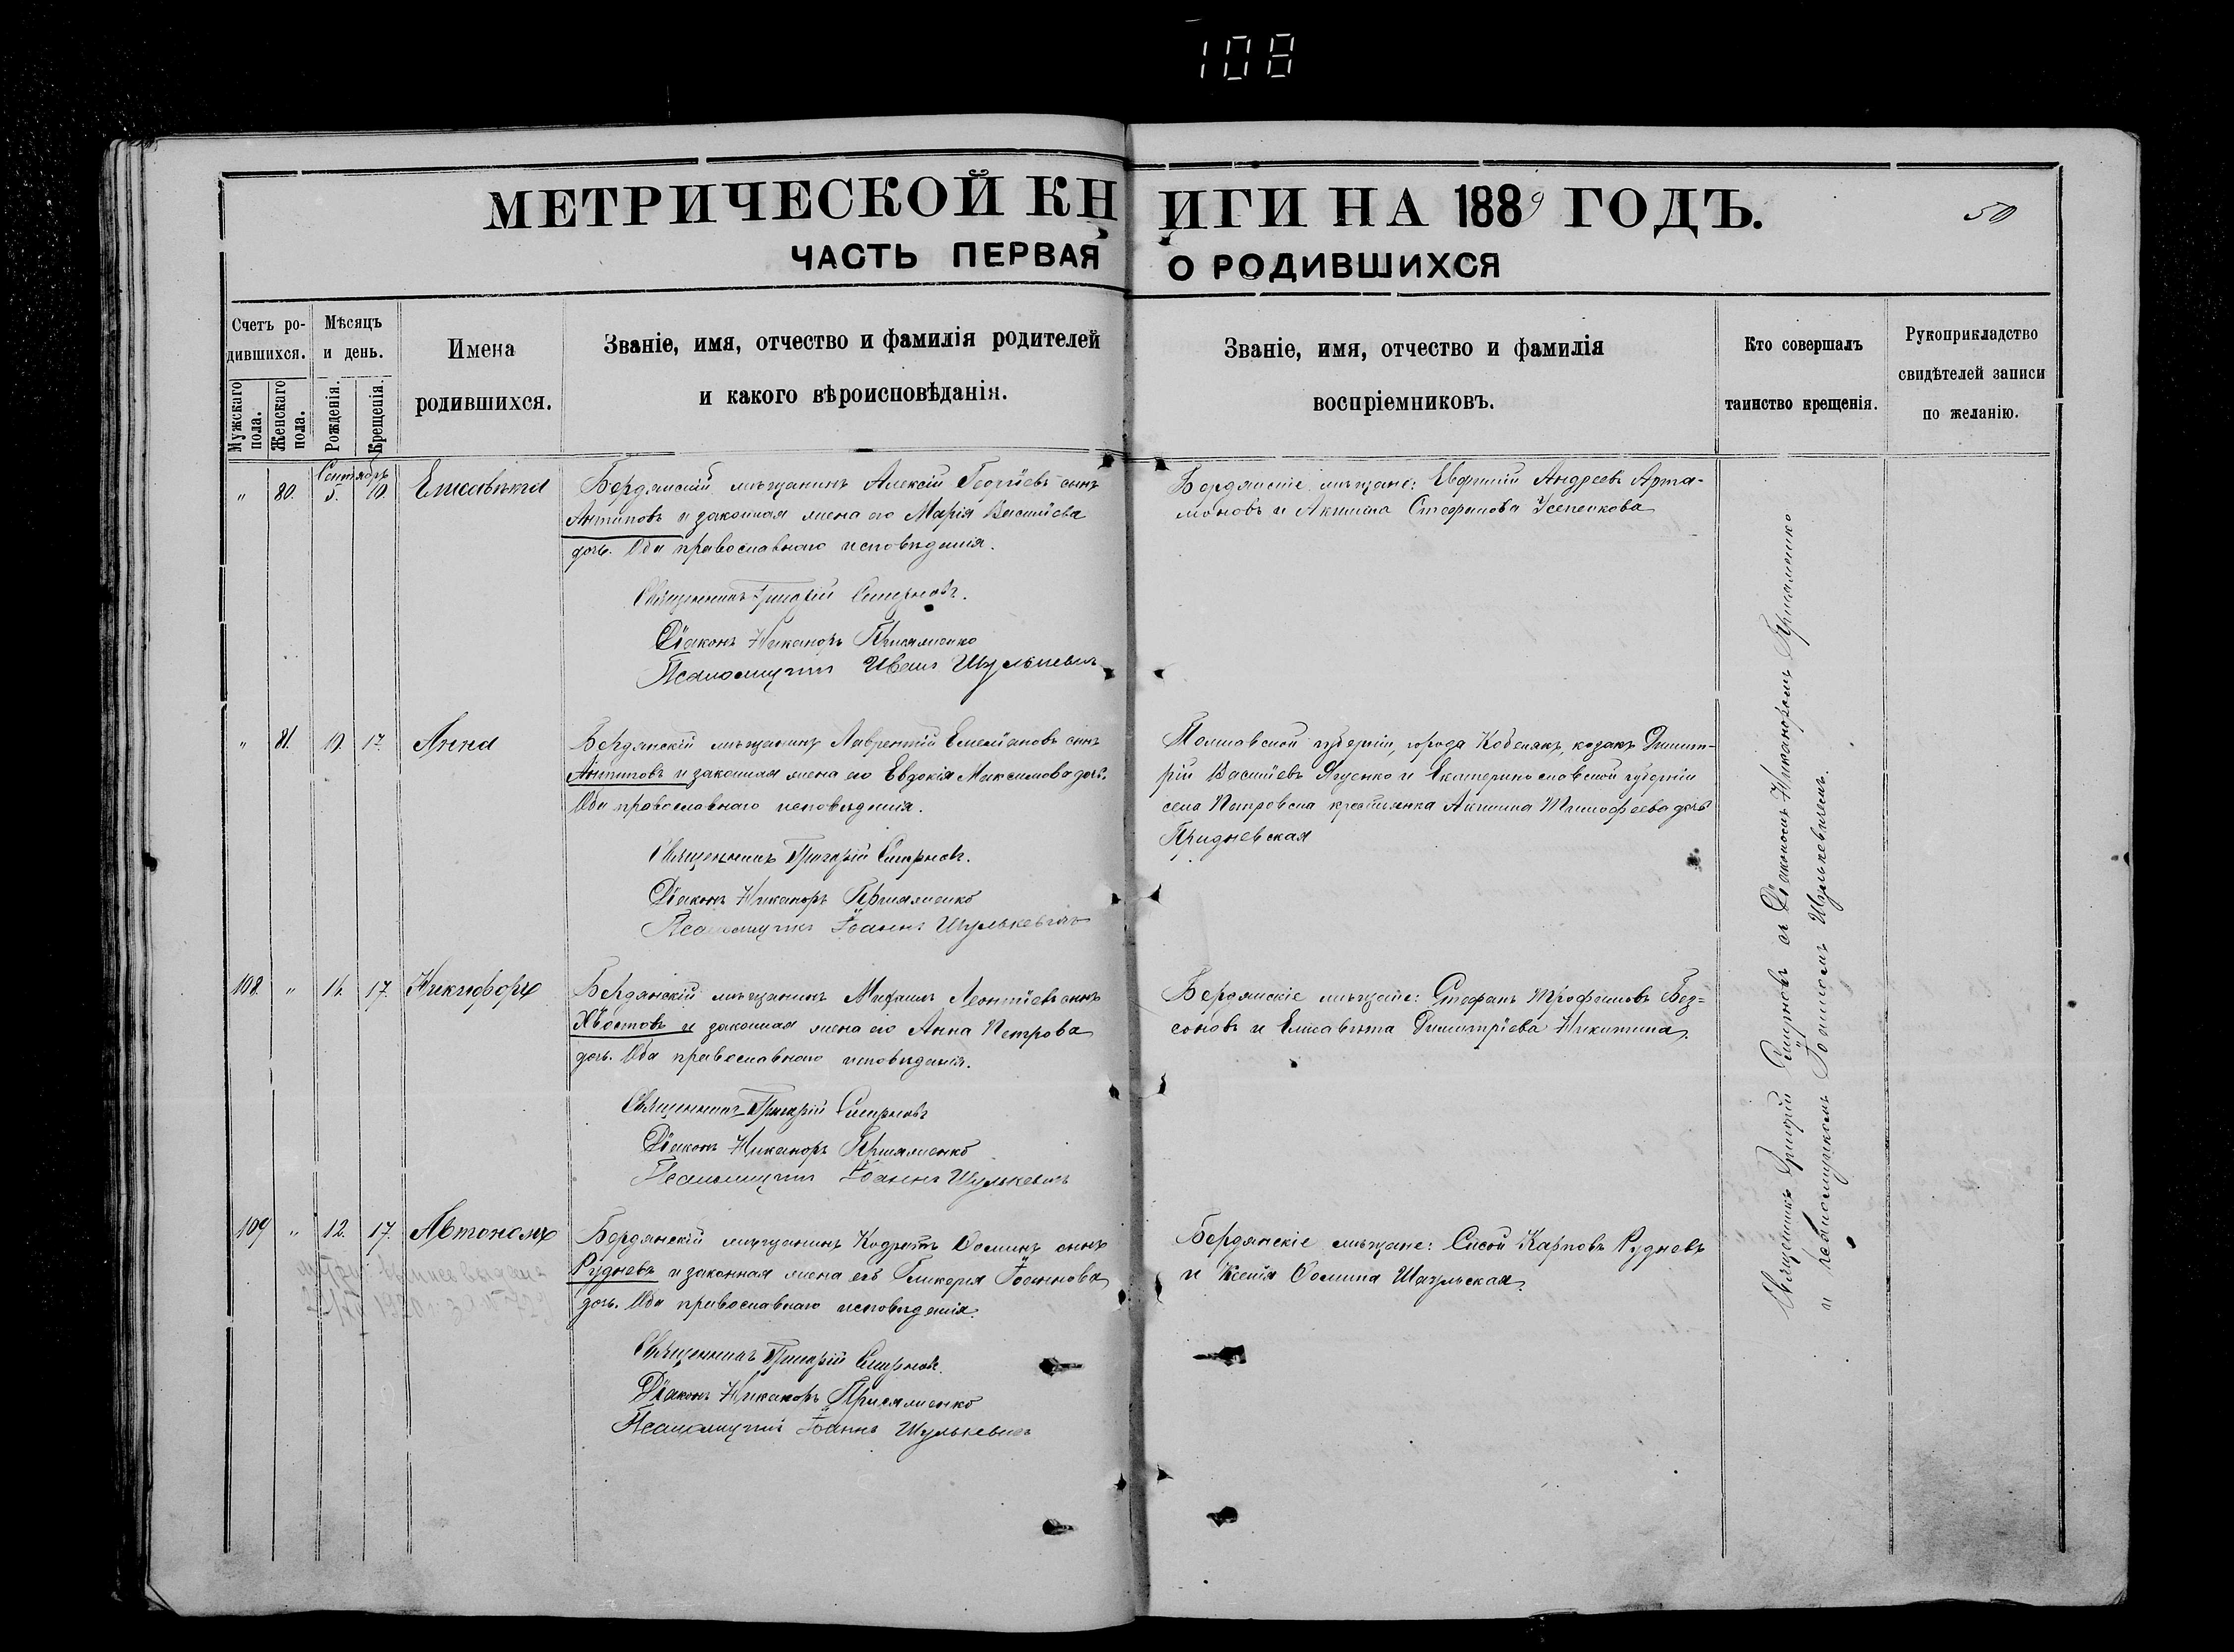 108
МЕТРИЧЕСКОЙ КНИГИ НА 1889 ГОДЪ.
50
ЧАСТЬ ПЕРВАЯ О РОДИВШИХСЯ
Счетъ ро-
дившихся.
Мужскаго пола.
Женскаго пола.
Мѣсяцъ
и день.
Рожденія.
Крещенія.
Имена
родившихся.
Званіе, имя, отчество и фамилія родителей
и какого вѣроисповѣданія.
Званіе, имя, отчество и фамилія
воспріемниковъ.
Кто совершалъ
таинство крещенія.
Рукоприкладство
свидѣтелей записи
по желанію.
Сентябрь
" 80. 5. 10. Елисавета
Бердянскій мѣщанинъ Алексій Георгіевъ сынъ
Антиповъ и законная жена его Марія Василіева
дочь. Оба православнаго исповѣданія.
Священникъ Григорій Смирновъ.
Діаконъ Никаноръ Присяженко
Псаломщикъ Иванъ Шулькевичъ
Бердянскіе мѣщане: Евфимій Андреевъ Арта-
моновъ и Акилина Стефанова
" 81. 17. Анна
Бердянскій мѣщанинъ Лаврентій Емеліановъ сынъ
Антиповъ и законная жена его Евдокія Максимова дочь.
Оба православнаго исповѣданія.
Священникъ Григорій Смирновъ.
Діаконъ Никаноръ Присяженко
Псаломщикъ Іоаннъ Шулькевичъ
Полтавской губерніи, города Кобелякъ, козакъ Димит-
рій Василіевъ Яценко и Екатеринославской губерніи
села Петровска крестьянка Акилина Тимофеева дочь
108. " 17. Никифоръ
Бердянскій мѣщанинъ Михаилъ Леонтіевъ сынъ
Хвостовъ и законная жена его Анна Петрова
дочь. Оба православнаго исповѣданія.
Священникъ Григорій Смирновъ
Діаконъ Никаноръ Присяженко
Псаломщикъ Іоаннъ Шулькевичъ
Бердянскіе мѣщане: Стефанъ Трофимовъ Без=
соновъ и Елисавета Димитріева Никитина.
109 " 12. 17. Автономъ
Бердянскій мѣщанинъ Кодратъ Ѳоминъ сынъ
Рудневъ и законная жена его Гликерія Іоаннова
дочь. Оба православнаго исповѣданія.
Священникъ Григорій Смирновъ.
Діаконъ Никаноръ Присяженко
Псаломщикъ Іоаннъ Шулькевичъ
Бердянскіе мѣщане: Сисой Карповъ Рудневъ
и Ксенія Ѳомина
Священникъ Григорій Смирновъ съ Діакономъ Никаноромъ Присяженко
и псаломщикомъ Іоанномъ Шулькевичемъ.